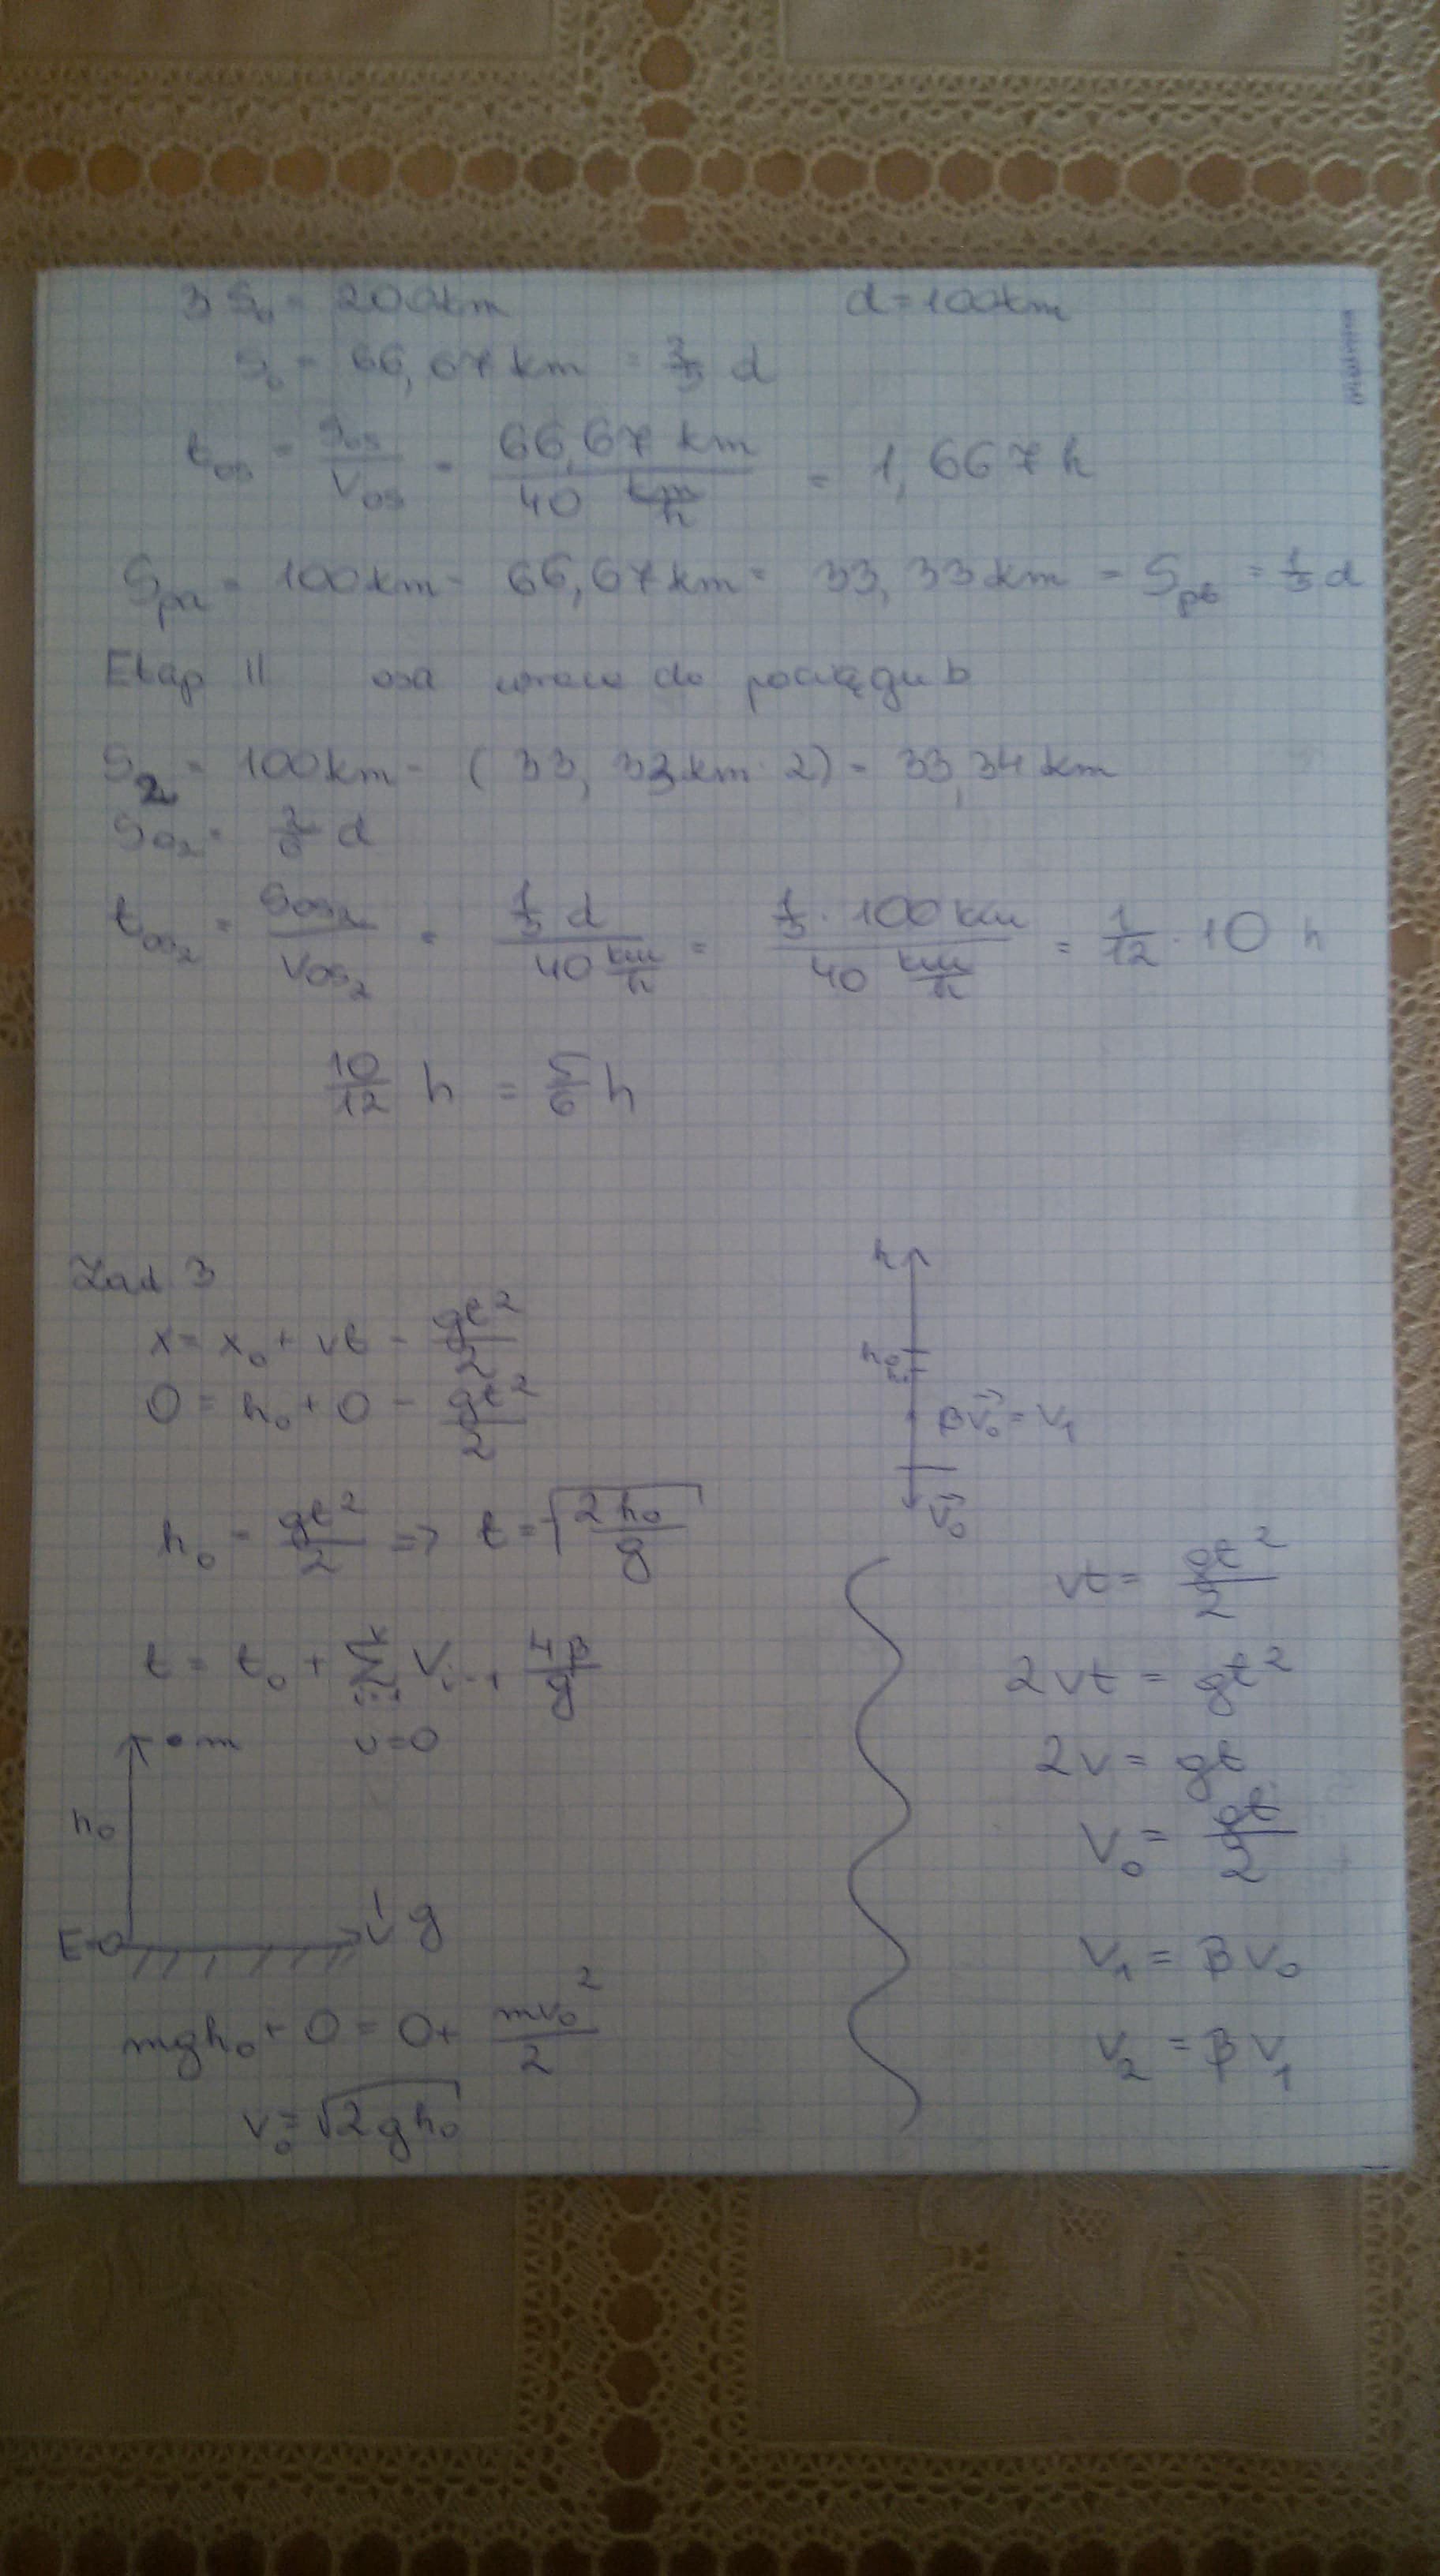 3 S₀ = 200km d = 100km
S₀ = 66,67 km = 2/3 d
t_os = S_os / V_os = 66,67 km / 40 km/h = 1,667 h
S_pa = 100km - 66,67 km = 33,33 km = S_pb = 1/3 d
Etap II osa wraca do pociągu b
S₂ = 100km - (33,33km · 2) = 33,34 km
d
t_os₂ = S_os₂ / V_os₂ = 1/3 d / 40 km/h = 1/3 · 100 km / 40 km/h = 1/12 · 10 h
10/12 h = 5/6 h
Zad 3
x = x₀ + vt - gt²/2
0 = h₀ + 0 - gt²/2
h₀ = gt²/2 => t = √(2h₀/g)
t = t₀ + Σ V_i-1 4β/g
m v=0
h₀
E=0 g
mgh₀ + 0 = 0 + mv₀²/2
v₀ = √(2gh₀)
h
h₀
βv₀ = v₁
v₀
vt = gt²/2
2vt = gt²
2v = gt
V₀ = gt/2
V₁ = βV₀
V₂ = βV₁